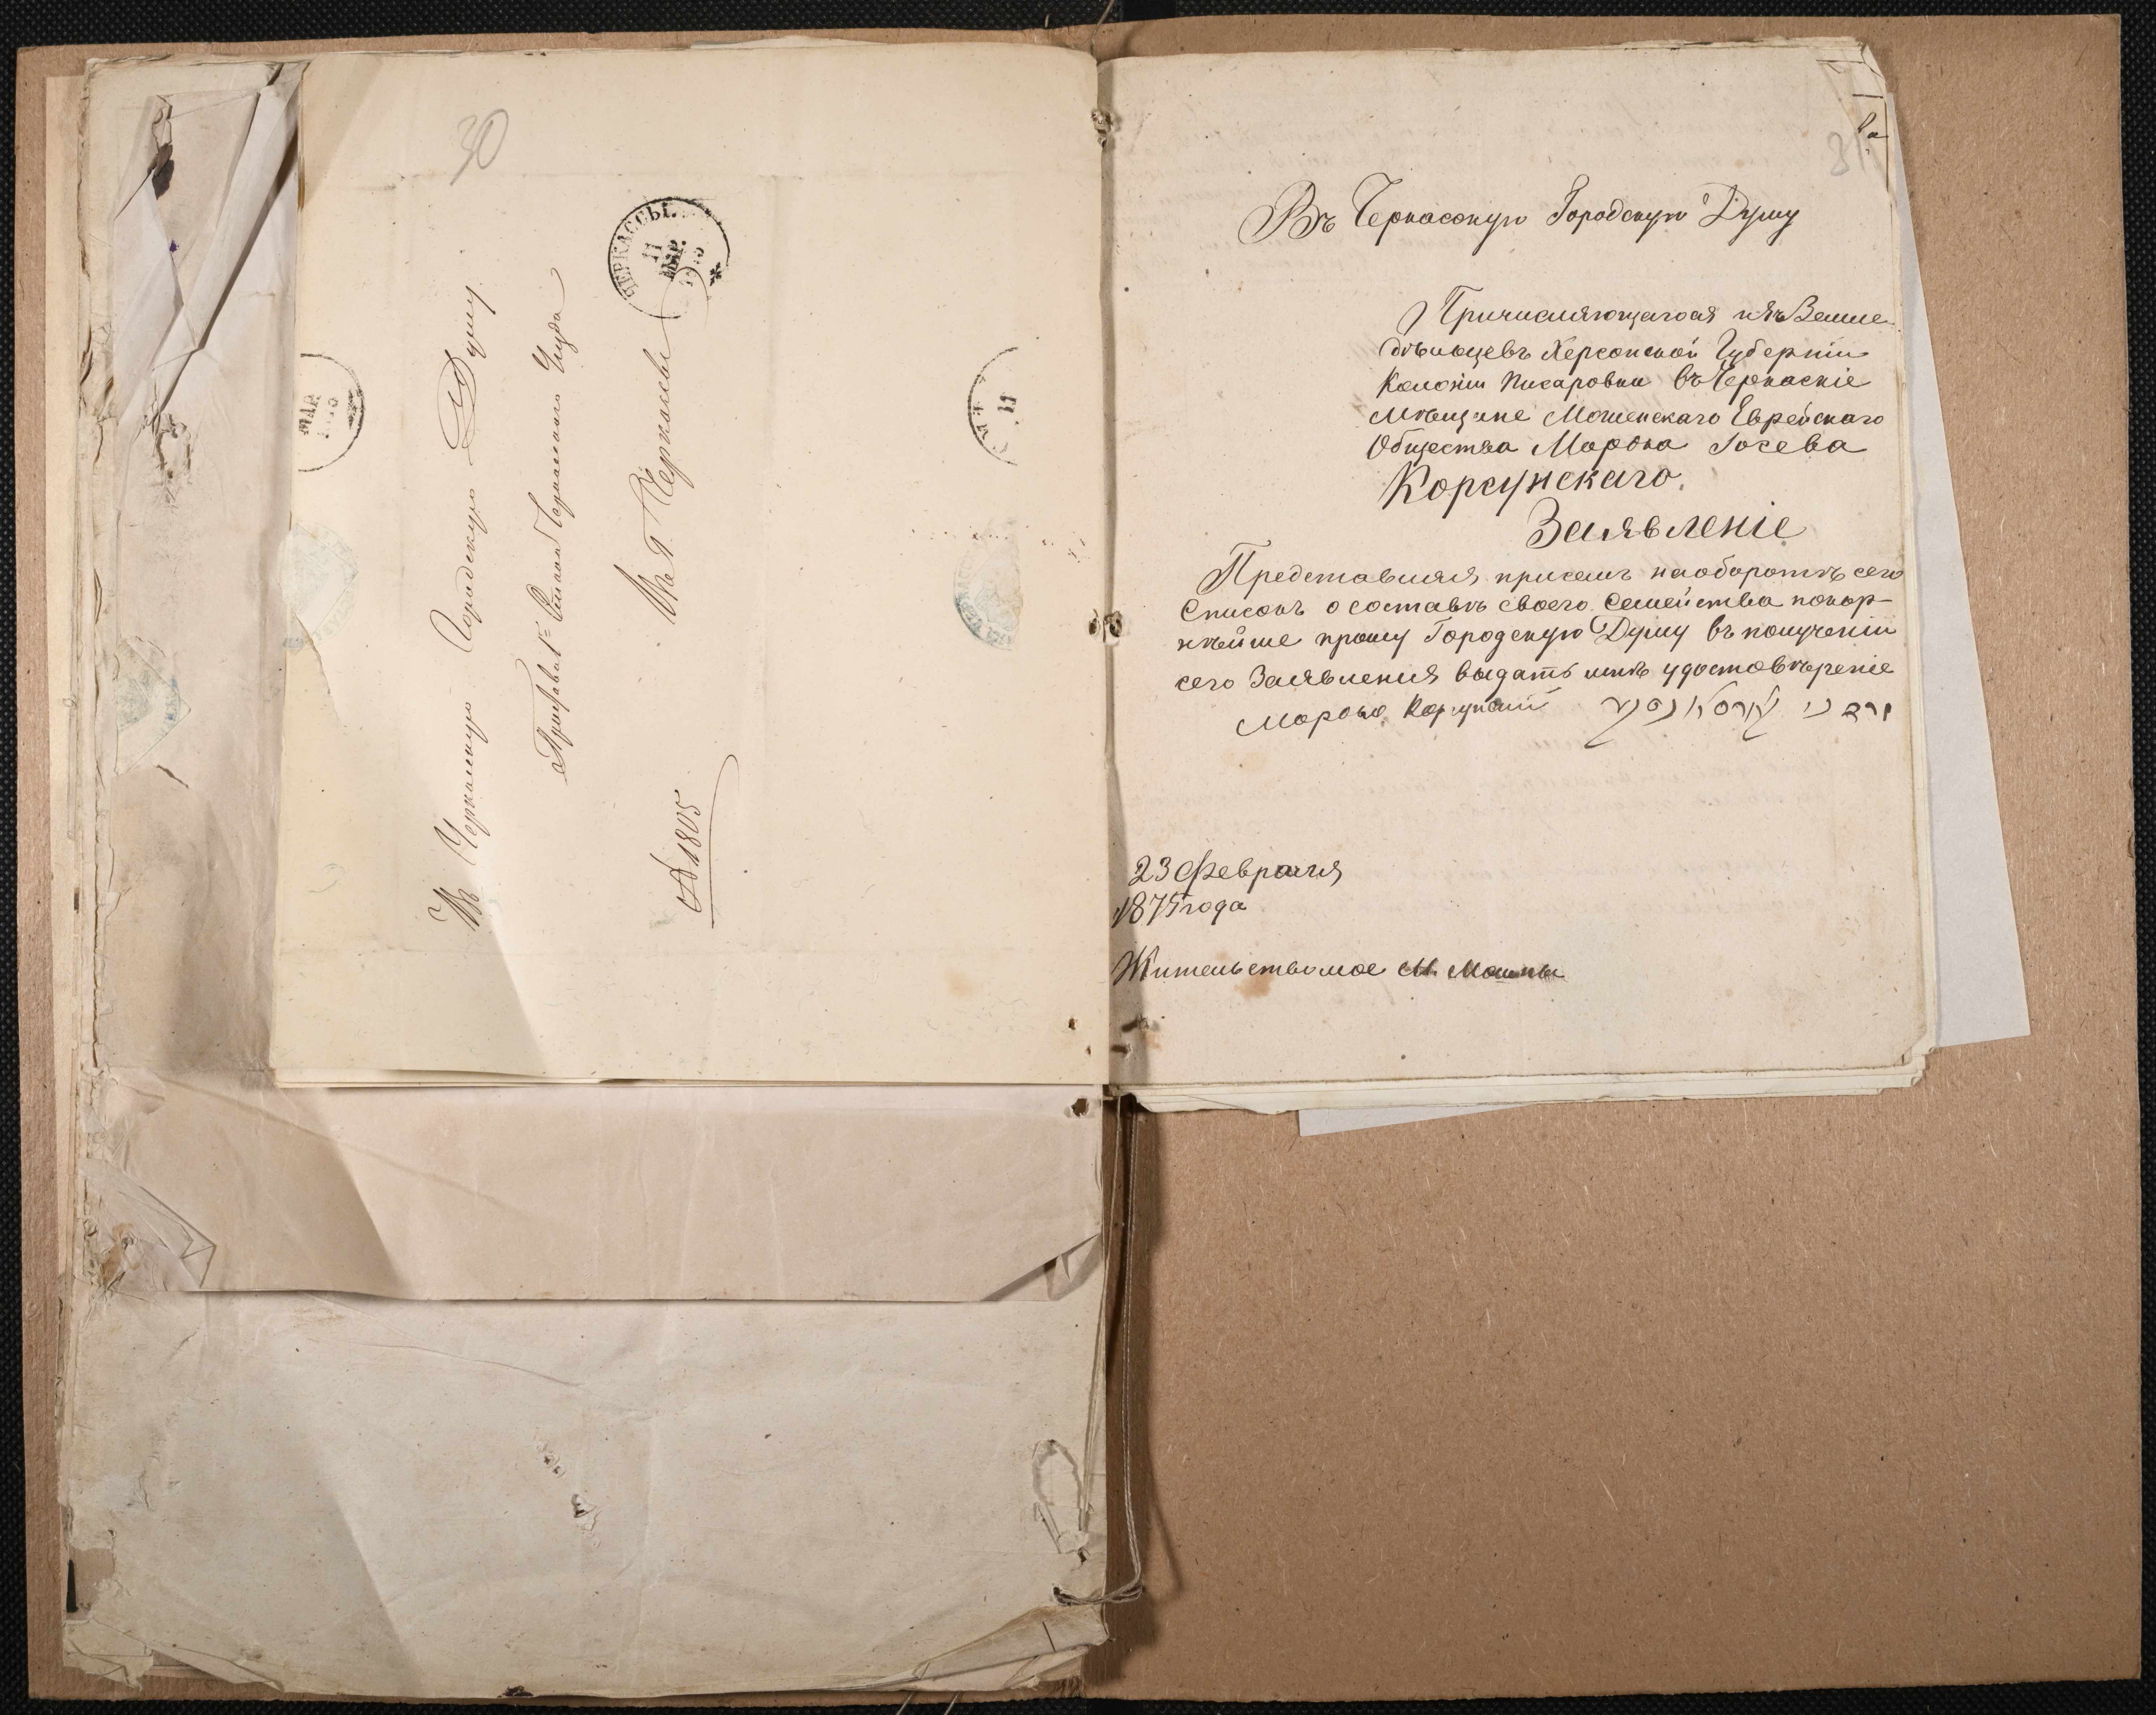 30
Въ Черкасскую Городскую Думу
Черкасскаго Уѣзда
Въ г. Черкассы
№ 1805
ЧЕРКАССЫ.
11
МАР.
МАР
11
31
Въ Черкаскую Городскую Думу
Причисляющагося изъ Земле
дѣльцевъ Херсонской Губерніи
Колоніи Писаровки въ Черкаскіе
Мѣщане Мошенскаго Еврейскаго
Общества Мордка Іосева
Корсунскаго.
Заявленіе
Представляя присемъ наоборотѣ сего
Списокъ о составѣ своего Семейства покор-
нѣйше прошу Городскую Думу въ полученіи
сего Заявленія выдать мнѣ удостовѣреніе
Мордко Корсунскій
23 Февраля
1875 года
Жительство мое М. Мошны